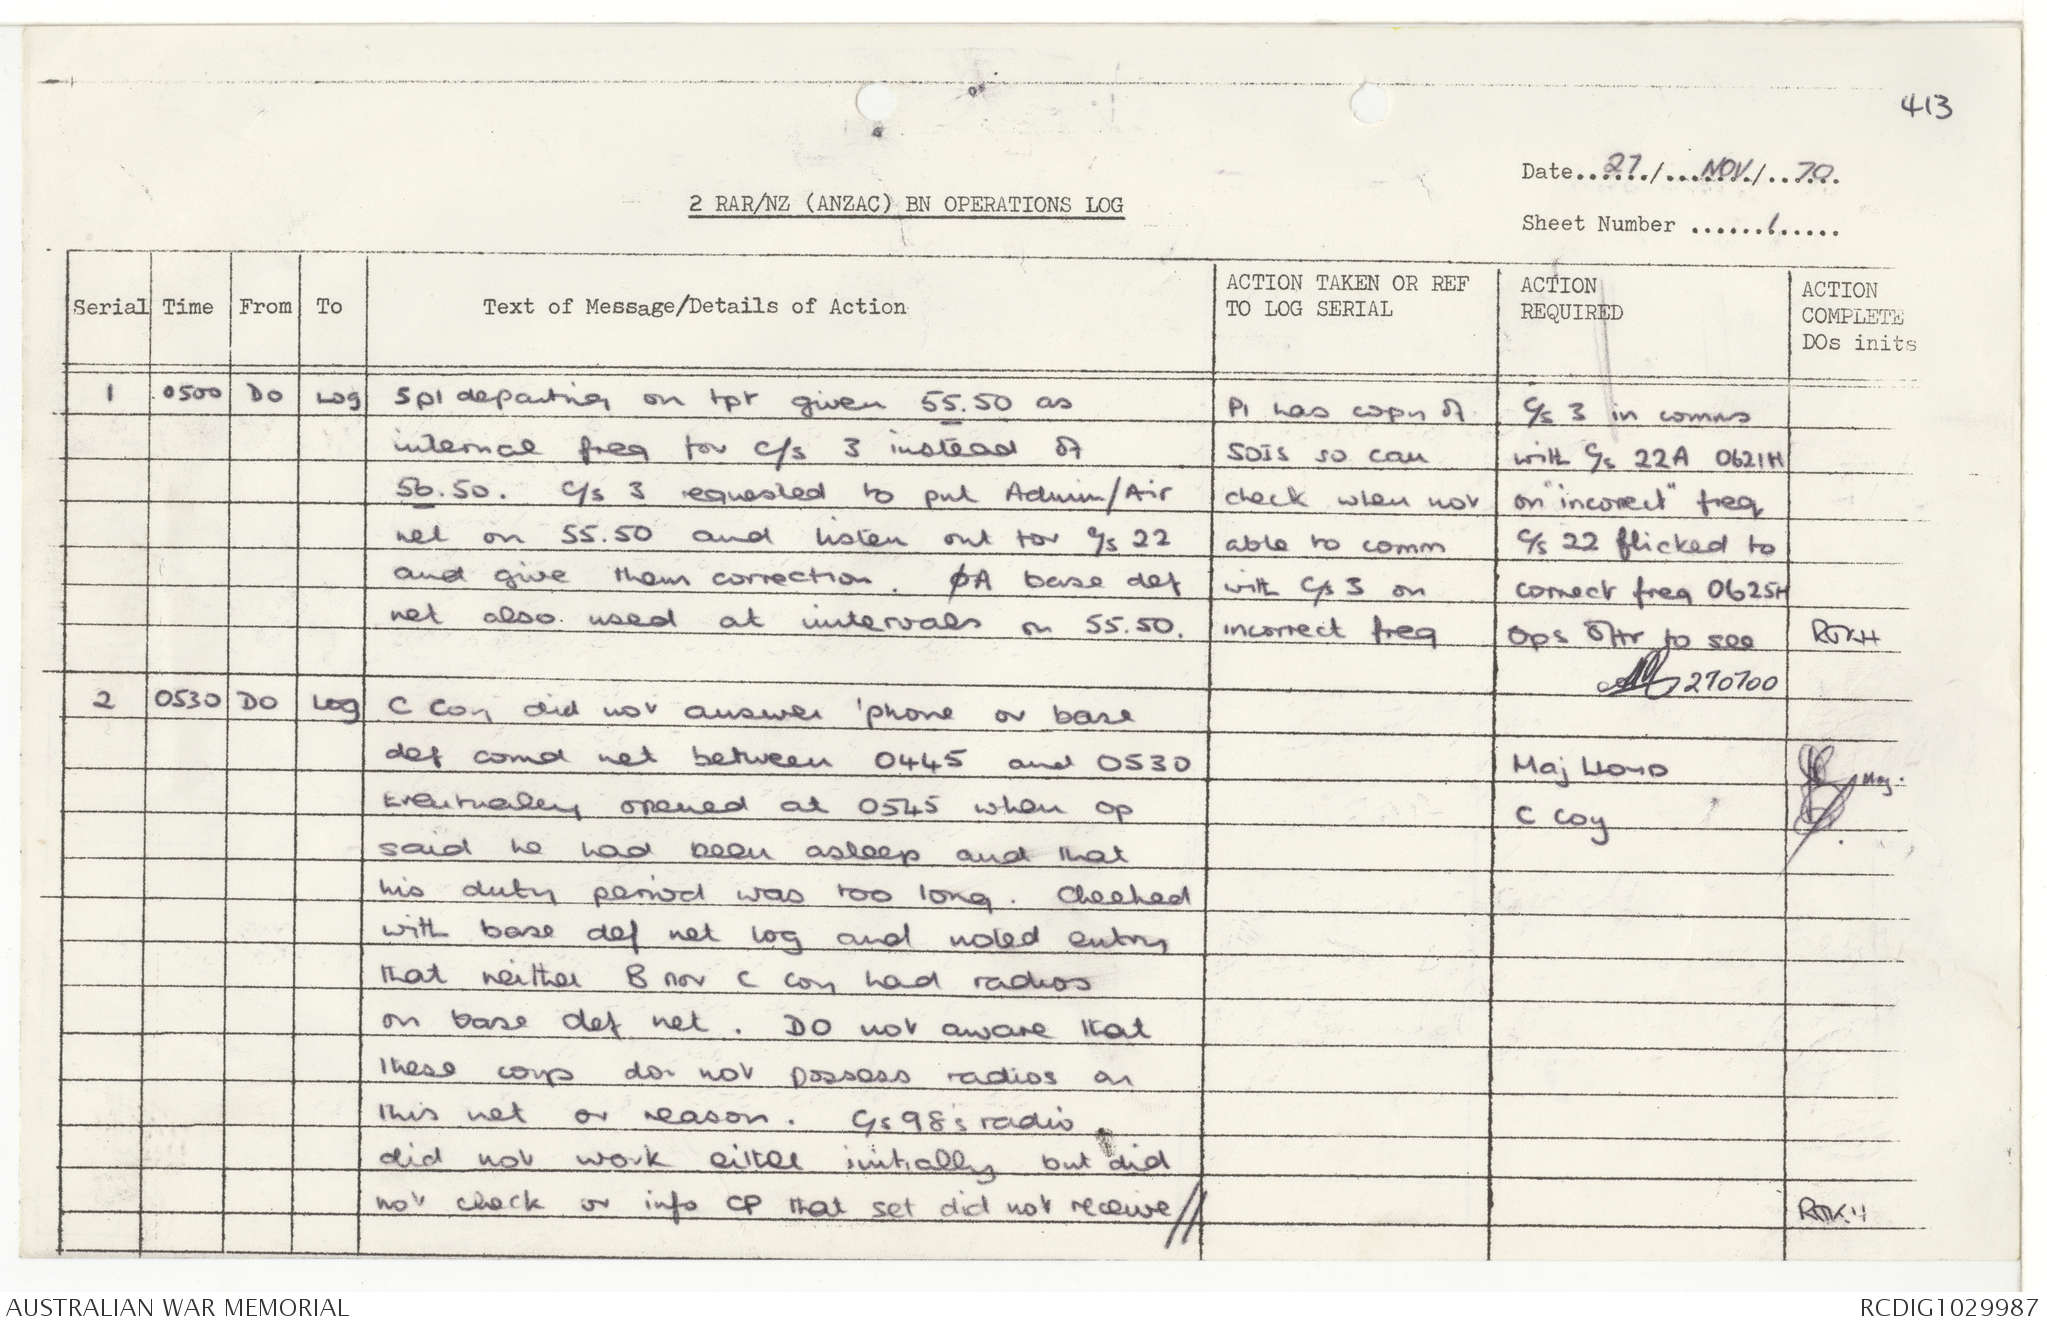 413
Date......27./...NOV./..70.
2 RAR/NZ (ANZAC) BN OPERATIONS LOG
Sheet Number ......1.....
Serial Time From To Text of Message/Details of Action ACTION TAKEN OR REF TO LOG SERIAL ACTION REQUIRED ACTION COMPLETE DOs inits
1 0500 DO Log 5pl departing on tpt given 55.50 as Pl has copy of C/s 3 in comms
internal freq for C/s 3 instead of SOIs so can with C/s 22A 0621H
56.50. C/s 3 requested to put Admin/Air check when not on "incorrect" freq
net on 55.50 and listen out for C/s 22 able to comm C/s 22 flicked to
and give them correction. ØA base def with C/s 3 on correct freq 0625H
net also used at intervals on 55.50. incorrect freq Ops Offr to see RTKH
270700
2 0530 DO Log C Coy did not answer 'phone or base
def comd net between 0445 and 0530 Maj Lloyd Maj.
Eventually opened at 0545 when op C Coy
said he had been asleep and that
his duty period was too long. Checked
with base def net log and noted entry
that neither B nor C coy had radios
on base def net. DO not aware that
these coys do not possess radios on
this net or reason. C/s 98's radio
did not work either initially but did
not check or info CP that set did not receive// RTKH
AUSTRALIAN WAR MEMORIAL
RCDIG1029987